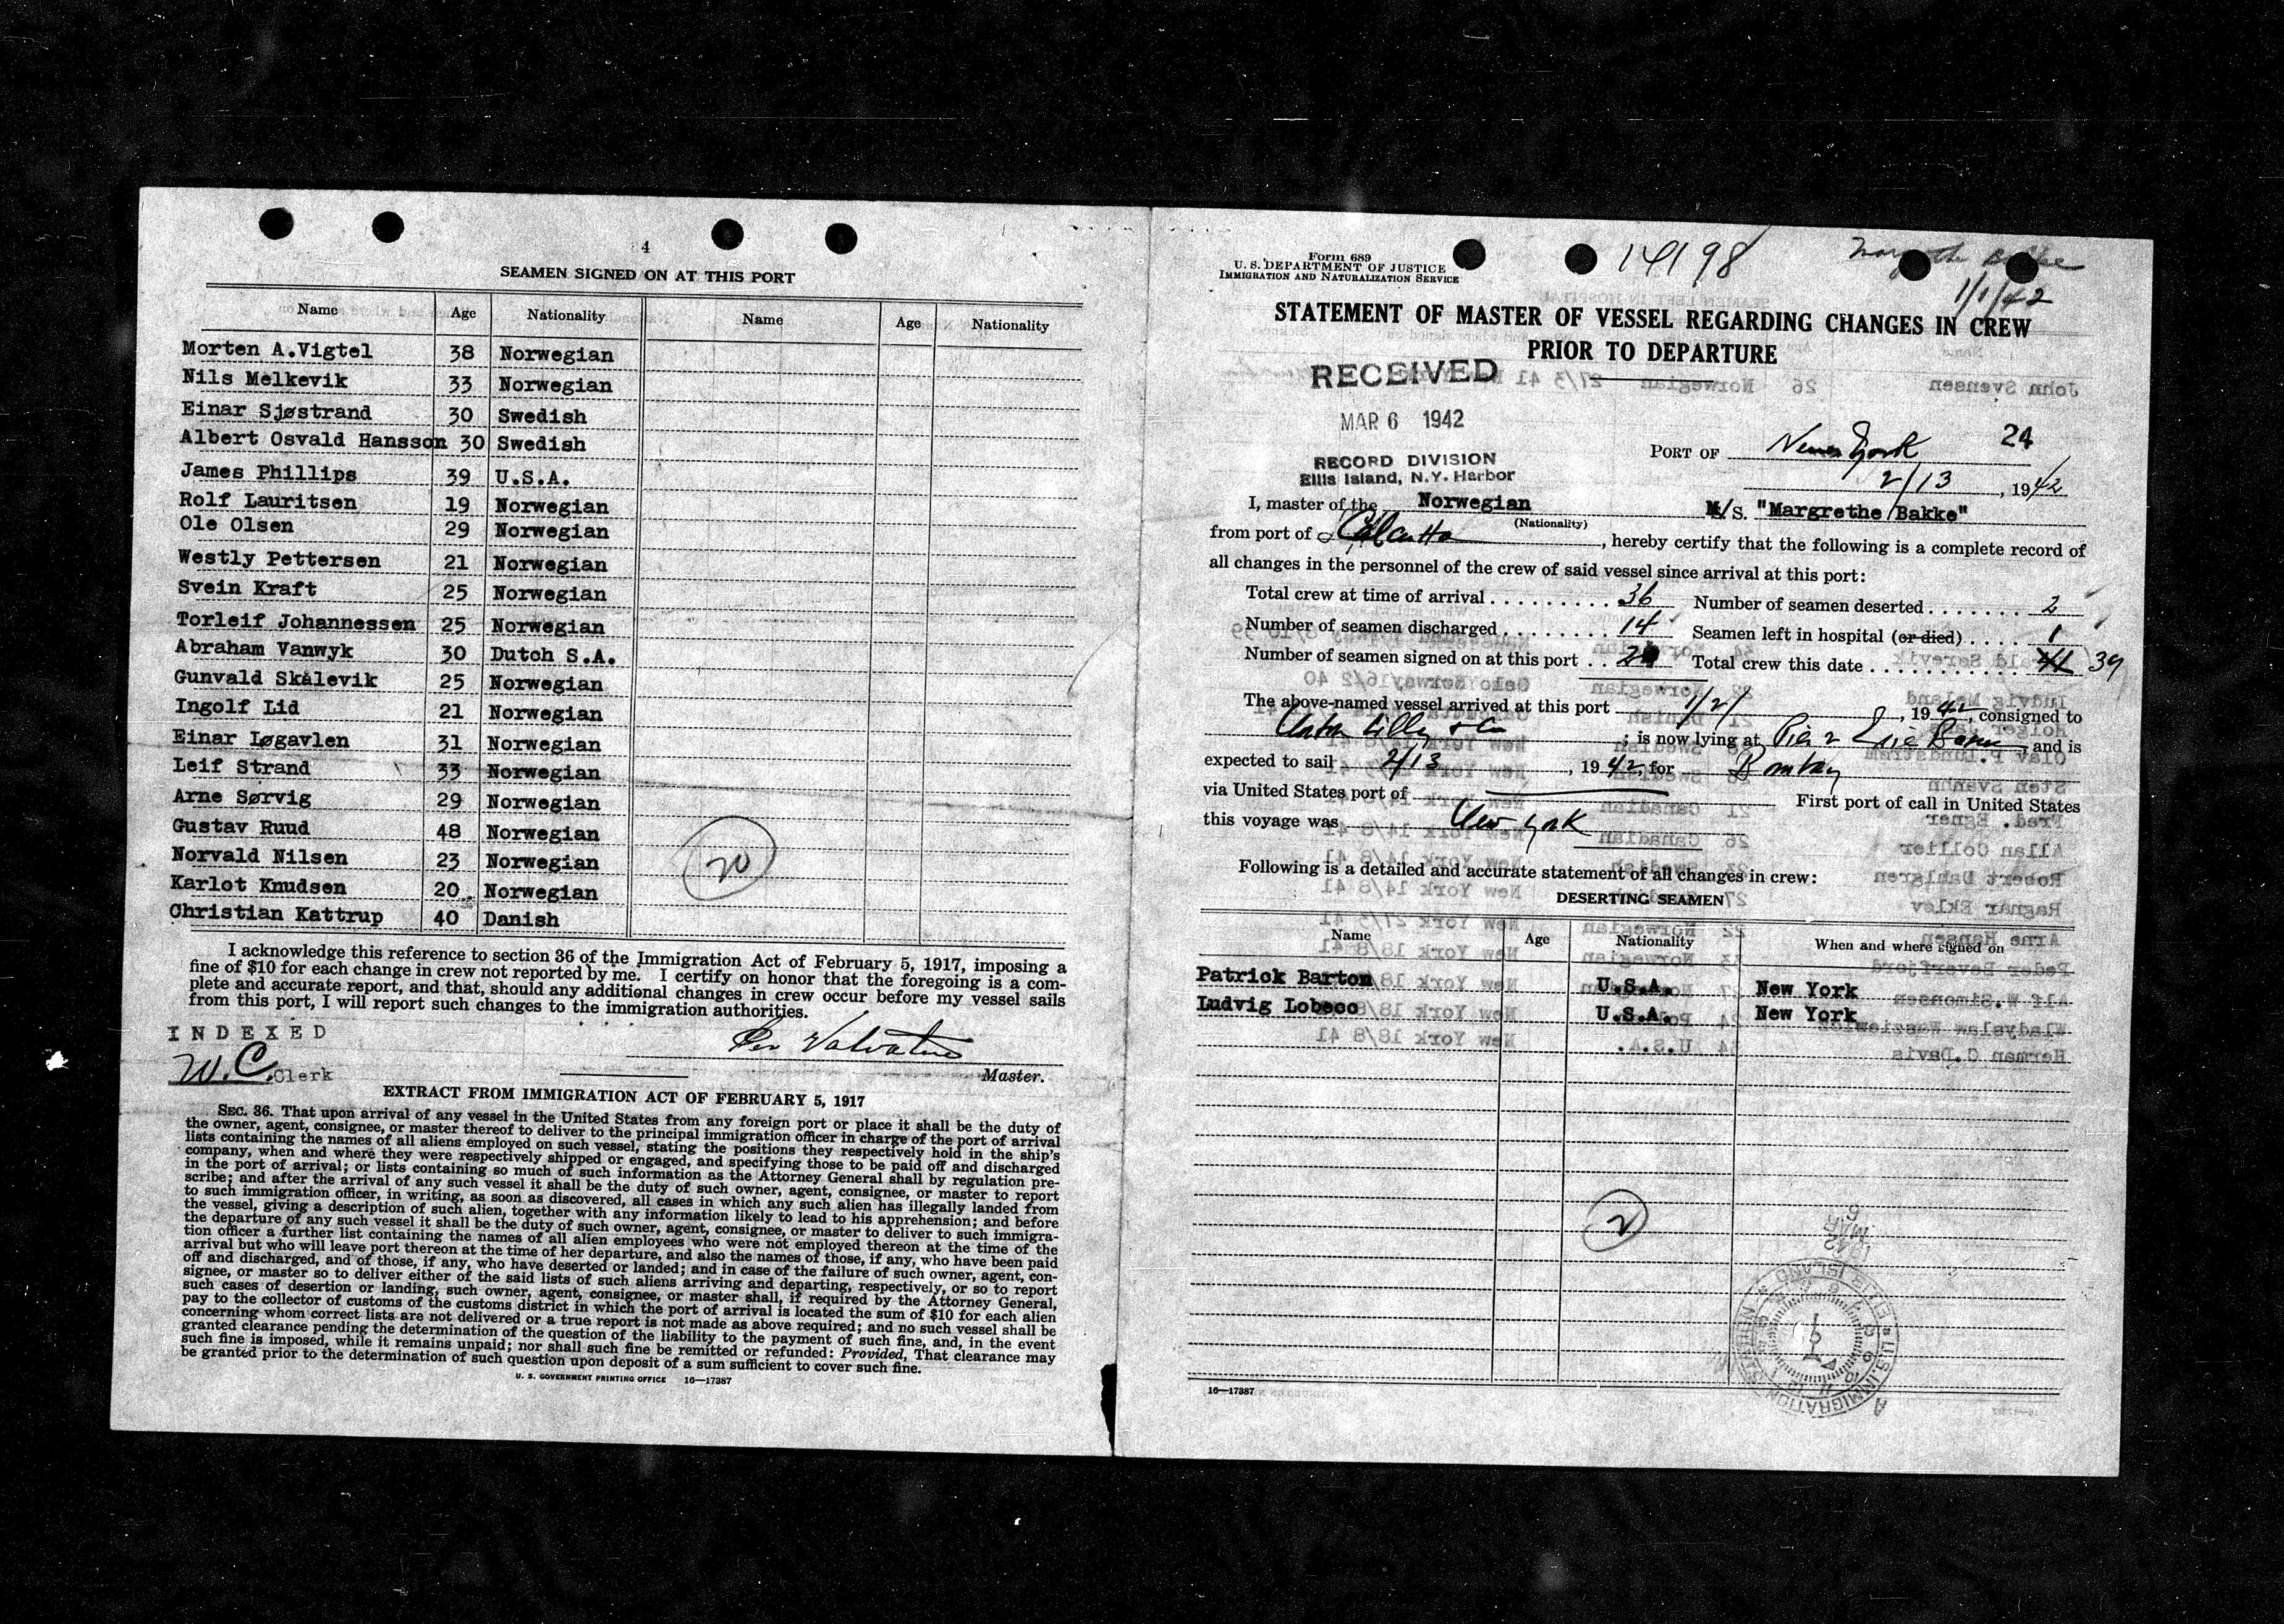 4
SEAMEN SIGNED ON AT THIS PORT
Name Age Nationality Name Age Nationality
Morten A.Vigtel 38 Norwegian
Nils Melkevik 33 Norwegian
Einar Sjøstrand 30 Swedish
Albert Osvald Hansson 30 Swedish
James Phillips 39 U.S.A.
Rolf Lauritsen 19 Norwegian
Ole Olsen 29 Norwegian
Westly Pettersen 21 Norwegian
Svein Kraft 25 Norwegian
Torleif Johannessen 25 Norwegian
Abraham Vanwyk 30 Dutch S.A.
Gunvald Skålevik 25 Norwegian
Ingolf Lid 21 Norwegian
Einar Løgavlen 31 Norwegian
Leif Strand 33 Norwegian
Arne Sørvig 29 Norwegian
Gustav Ruud 48 Norwegian
Norvald Nilsen 23 Norwegian
Karlot Knudsen 20 Norwegian
Christian Kattrup 40 Danish
20
I acknowledge this reference to section 36 of the Immigration Act of February 5, 1917, imposing a
fine of $10 for each change in crew not reported by me. I certify on honor that the foregoing is a com-
plete and accurate report, and that, should any additional changes in crew occur before my vessel sails
from this port, I will report such changes to the immigration authorities.
INDEXED
W.C. Clerk
Master.
EXTRACT FROM IMMIGRATION ACT OF FEBRUARY 5, 1917
SEC. 36. That upon arrival of any vessel in the United States from any foreign port or place it shall be the duty of
the owner, agent, consignee, or master thereof to deliver to the principal immigration officer in charge of the port of arrival
lists containing the names of all aliens employed on such vessel, stating the positions they respectively hold in the ship's
company, when and where they were respectively shipped or engaged, and specifying those to be paid off and discharged
in the port of arrival; or lists containing so much of such information as the Attorney General shall by regulation pre-
scribe; and after the arrival of any such vessel it shall be the duty of such owner, agent, consignee, or master to report
to such immigration officer, in writing, as soon as discovered, all cases in which any such alien has illegally landed from
the vessel, giving a description of such alien, together with any information likely to lead to his apprehension; and before
the departure of any such vessel it shall be the duty of such owner, agent, consignee, or master to deliver to such immigra-
tion officer a further list containing the names of all alien employees who were not employed thereon at the time of the
arrival but who will leave port thereon at the time of her departure, and also the names of those, if any, who have been paid
off and discharged, and of those, if any, who have deserted or landed; and in case of the failure of such owner, agent, con-
signee, or master so to deliver either of the said lists of such aliens arriving and departing, respectively, or so to report
such cases of desertion or landing, such owner, agent, consignee, or master shall, if required by the Attorney General,
pay to the collector of customs of the customs district in which the port of arrival is located the sum of $10 for each alien
concerning whom correct lists are not delivered or a true report is not made as above required; and no such vessel shall be
granted clearance pending the determination of the question of the liability to the payment of such fine, and, in the event
such fine is imposed, while it remains unpaid; nor shall such fine be remitted or refunded: Provided, That clearance may
be granted prior to the determination of such question upon deposit of a sum sufficient to cover such fine.
U. S. GOVERNMENT PRINTING OFFICE 16—17387
Form 689
U. S. DEPARTMENT OF JUSTICE
IMMIGRATION AND NATURALIZATION SERVICE
14198
Margrethe Bakke
1/1/42
STATEMENT OF MASTER OF VESSEL REGARDING CHANGES IN CREW
PRIOR TO DEPARTURE
RECEIVED
MAR 6 1942
RECORD DIVISION
Ellis Island, N.Y. Harbor
PORT OF New York 24
2/13, 1942
I, master of the Norwegian M/S. "Margrethe Bakke"
(Nationality)
from port of Calcutta, hereby certify that the following is a complete record of
all changes in the personnel of the crew of said vessel since arrival at this port:
Total crew at time of arrival 36 Number of seamen deserted 2
Number of seamen discharged 14 Seamen left in hospital (or died) 1
Number of seamen signed on at this port 20 Total crew this date 41 39
The above-named vessel arrived at this port 1/2/, 1942, consigned to
& Co; is now lying at Pier 2 Erie Basin, and is
expected to sail 2/13, 1942, for Bombay
via United States port of First port of call in United States
this voyage was New York
Following is a detailed and accurate statement of all changes in crew:
DESERTING SEAMEN
Name Age Nationality When and where signed on
Patrick Barton U.S.A. New York
Ludvig Lobeco U.S.A. New York
2
1942
MAR
6
U.S. IMMIGRATION
ELLIS ISLAND
16—17387